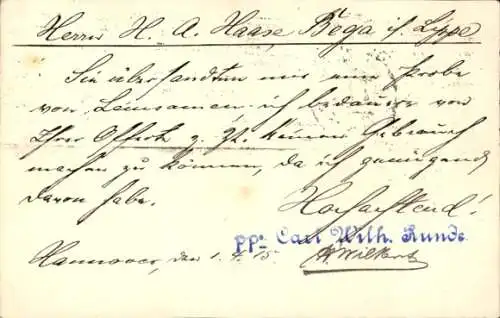 Herrn H. A. Haase, Bega i/ Lippe
Sie übersandten mir eine Probe
von Leinsamen, ich bedauere von
Ihrer Offerte z. Zt. keinen Gebrauch
machen zu können, da ich genügend
davon habe.
Hochachtend!
ppa Carl Wilh. Runde
Hannover, den 1.4.15. H. Wilkert